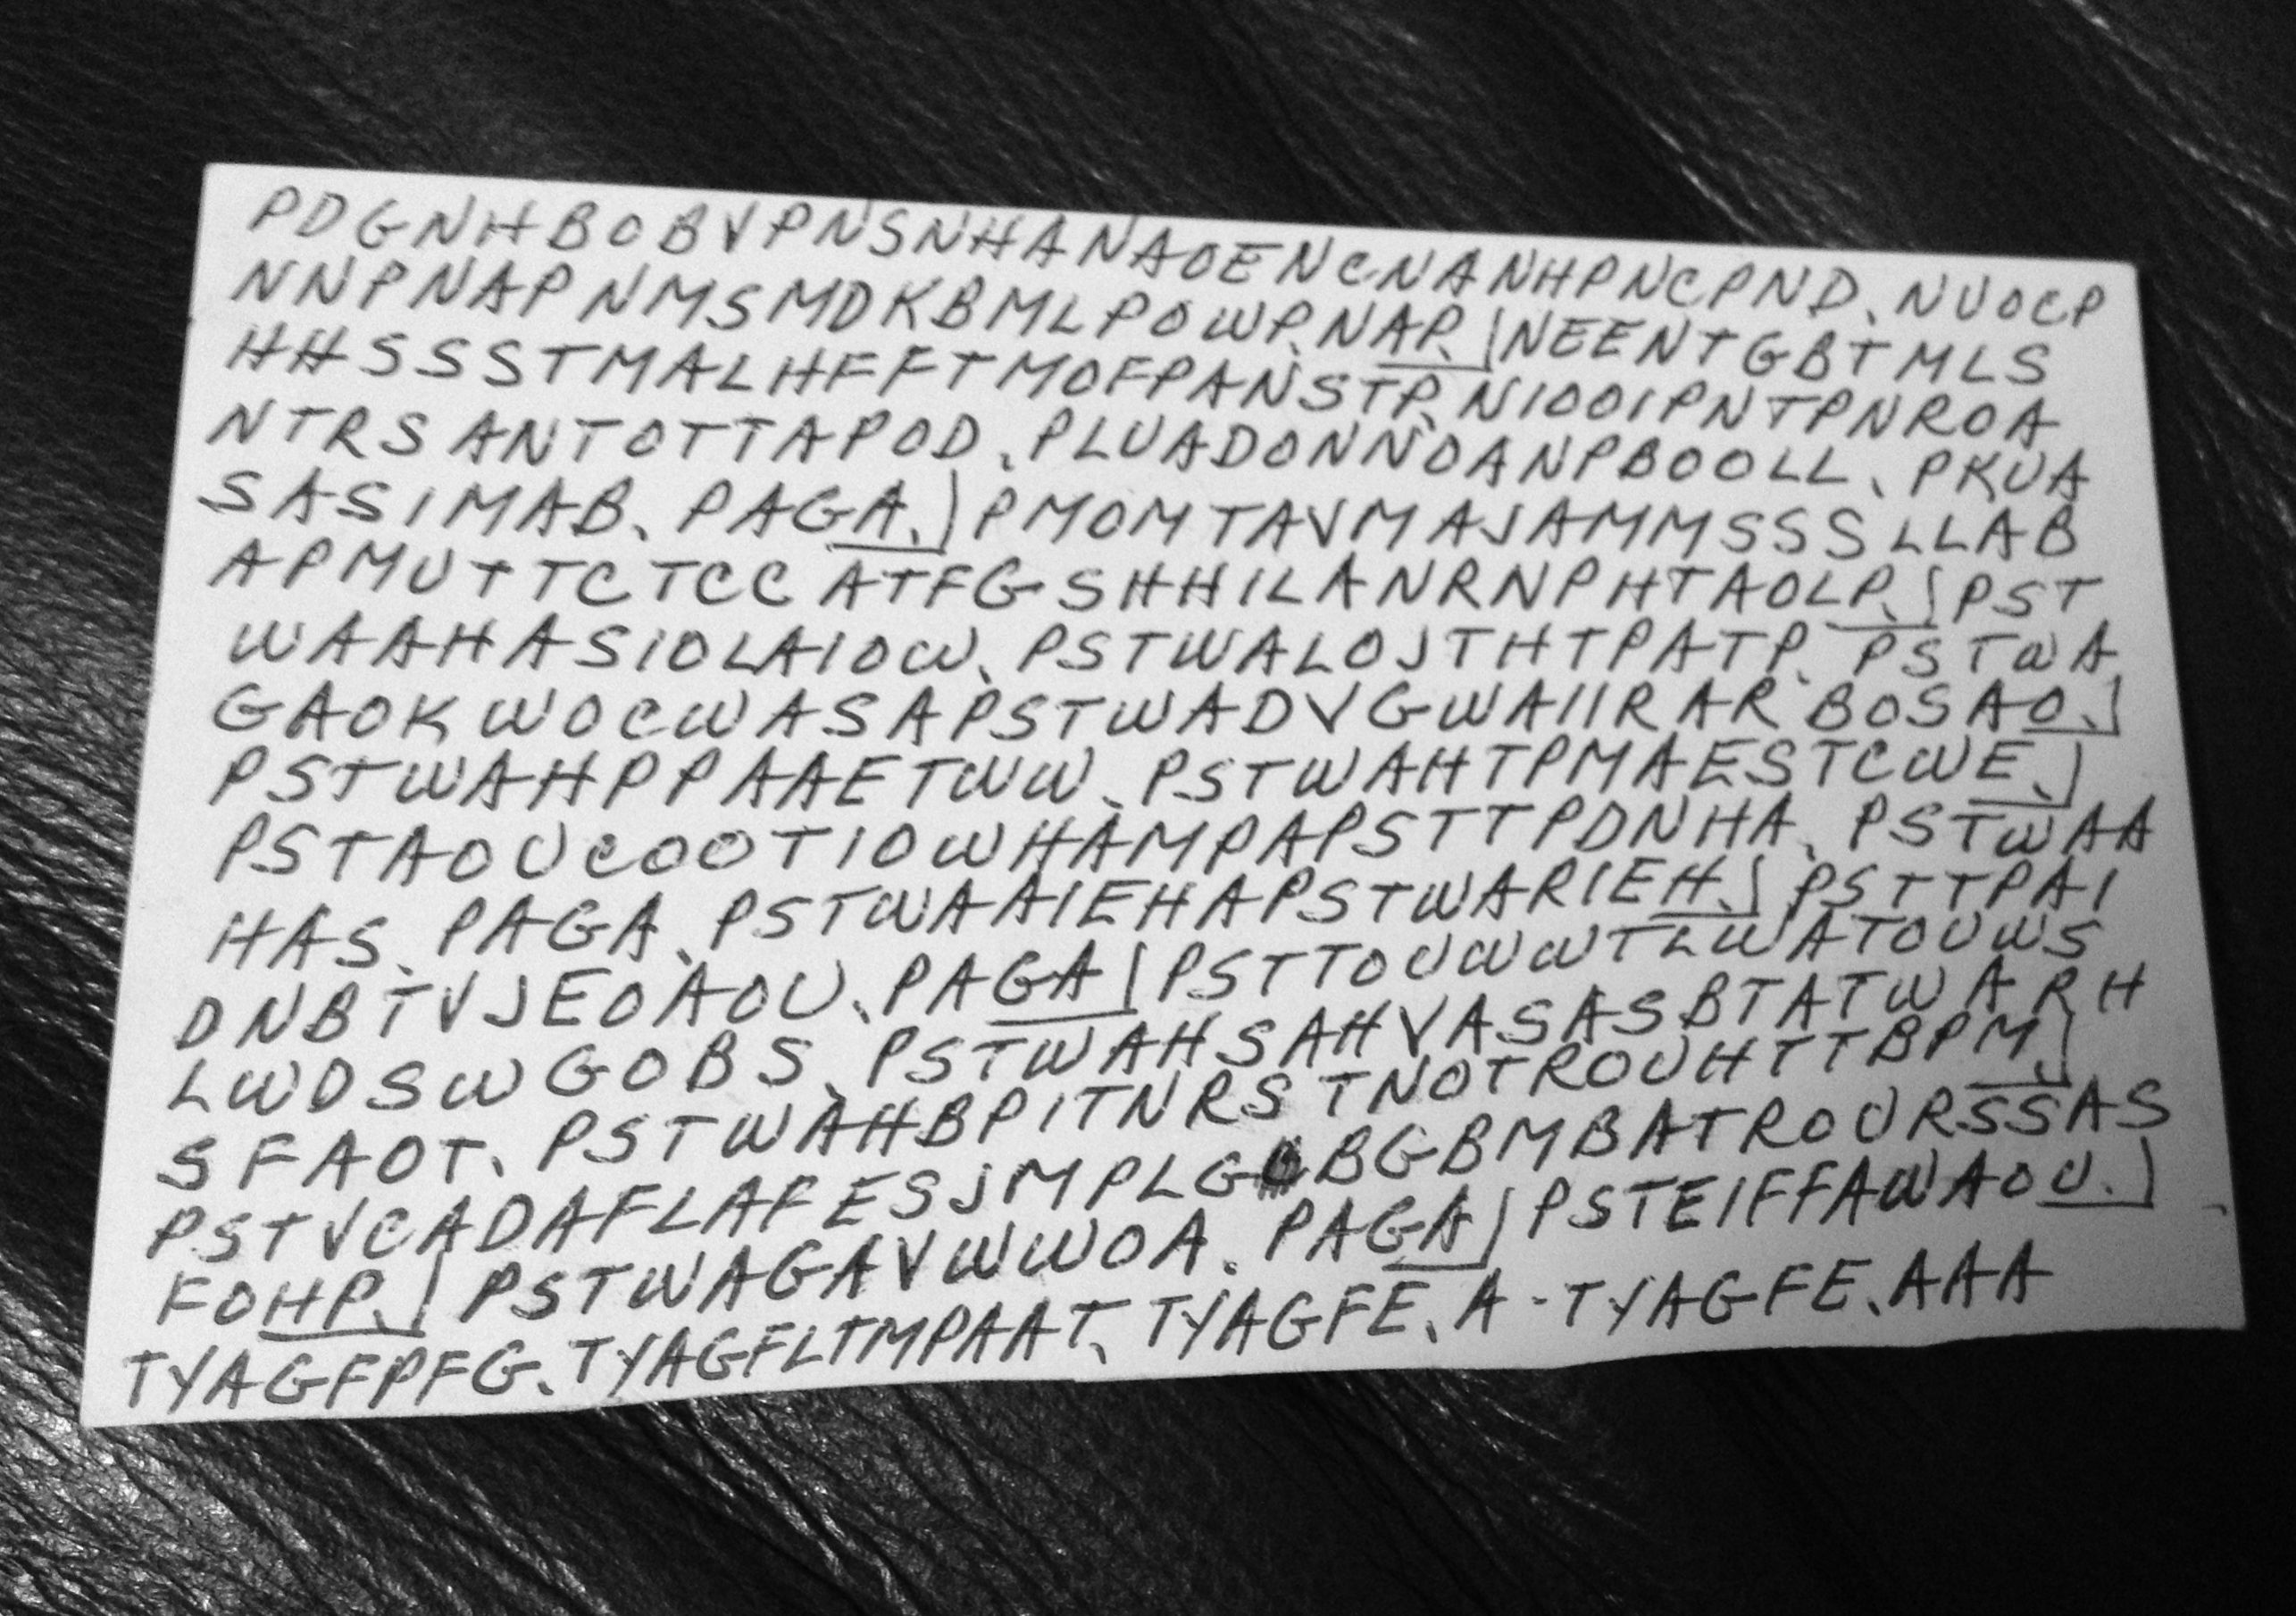 PDGNHBOBVPNSNHANAOENCNANHPNCPND. NUOCP
NNPNAPNMSMDKBMLPOWP. NAP. NEENTGBTMLS
HHSSSTMALHFFTMOFPANSTP. NIOOIPNTPNROA
NTRSANTOTTAPOD. PLUADONNOANPBOOLL. PKUA
SASIMAB. PAGA. PMOMTAVMAJAMMSSSLLAB
APMUTTCTCCATFGSHHILANRNPHTAOLP. PST
WAAHASIOLAIOW. PSTWALOJTHTPATP. PSTWA
GAOKWOCWASAPSTWADVGWAIIRARBOSAO.
PSTWAHPPAAETWW. PSTWAHTPMAESTCWE.
PSTAOUCOOTIOWHAMPAPSTTPDNHA. PSTWAA
HAS. PAGA. PSTWAAIEHAPSTWARIEH. PSTTPAI
DNBTVJEOAOU. PAGA PSTTOUWWTLWATOUWS
LWDSWGOBS. PSTWAHSAHVASASBTATWARH
SFAOT. PSTWAHBPITNRSTNOTROUHTTBPM.
PSTVCADAFLAFESJMPLGBGBMBATROURSSAS
FOHP. PSTWAGAVWWOA. PAGA PSTEIFFAWAOU.
TYAGFPFG. TYAGFLTMPAAT. TYAGFE. A-TYAGFE. AAA